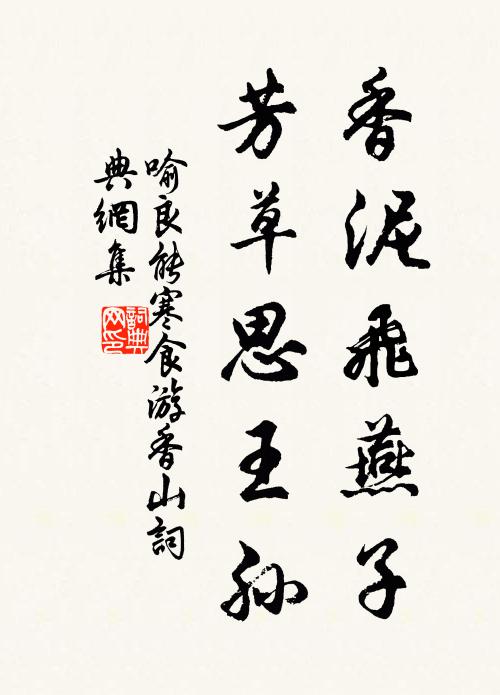 香泥飛燕子
芳草思王孙
喻良能寒食游香山詞
典網集
詞典
网印